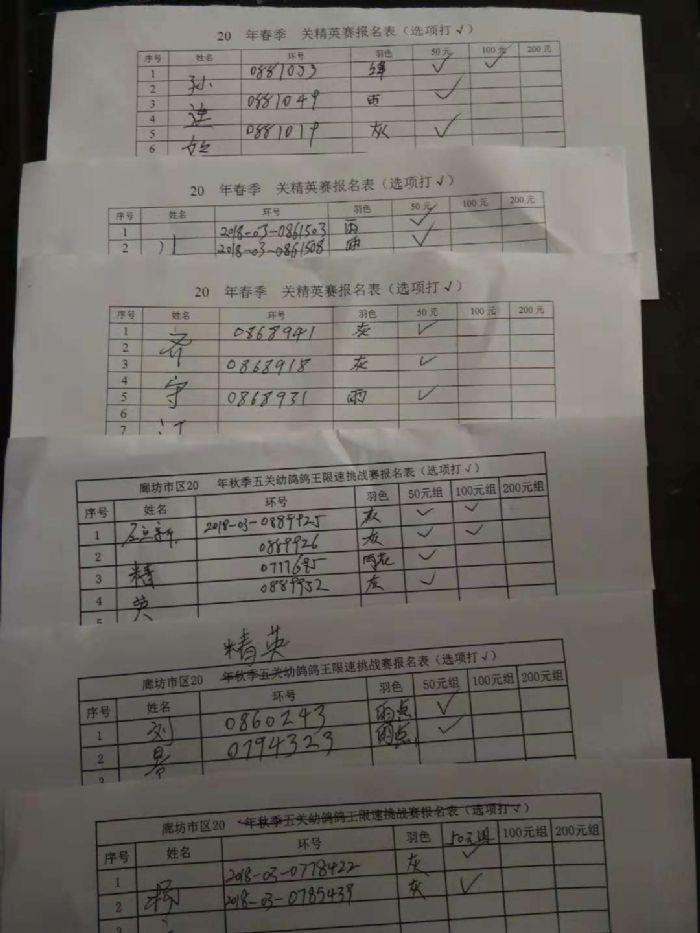 20 年春季 关精英赛报名表（选项打√）
序号 姓名 环号 羽色 50元 100元 200元
1 0881033 绛 √ √
2 孙
3 0881049 雨 √
4
5 0881019 灰 √
6
20 年春季 关精英赛报名表（选项打√）
序号 姓名 环号 羽色 50元 100元 200元
1 2018-03-0861503 雨 √
2 2018-03-0861508 雨 √
20 年春季 关精英赛报名表（选项打√）
序号 姓名 环号 羽色 50元 100元 200元
1 齐 0868941 灰 √
2
3 0868918 灰 √
4 守
5 0868931 雨 √
6
7 江
廊坊市区20 年秋季五关幼鸽鸽王限速挑战赛报名表（选项打√）
序号 姓名 环号 羽色 50元组 100元组 200元组
1 2018-03-0889925 灰 √ √
2 0889926 灰 √ √
3 精 0717695 雨花 √
4 英 0889932 灰 √
5
精英
廊坊市区20 年秋季五关幼鸽鸽王限速挑战赛报名表（选项打√）
序号 姓名 环号 羽色 50元组 100元组 200元组
1 刘 0860243 雨点 √
2 0794323 雨点 √
3
廊坊市区20 年秋季五关幼鸽鸽王限速挑战赛报名表（选项打√）
序号 姓名 环号 羽色 50元组 100元组 200元组
1 2018-03-0778422 灰 √
2 杨 2018-03-0785439 灰 √